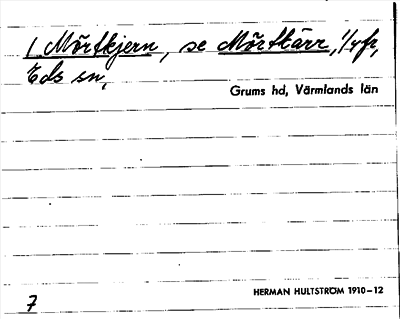 1 Mörtkjern, se Mörtkärr, 1/4 fr,
Eds sn,
Grums hd, Värmlands län
HERMAN HULTSTRÖM 1910–12
7